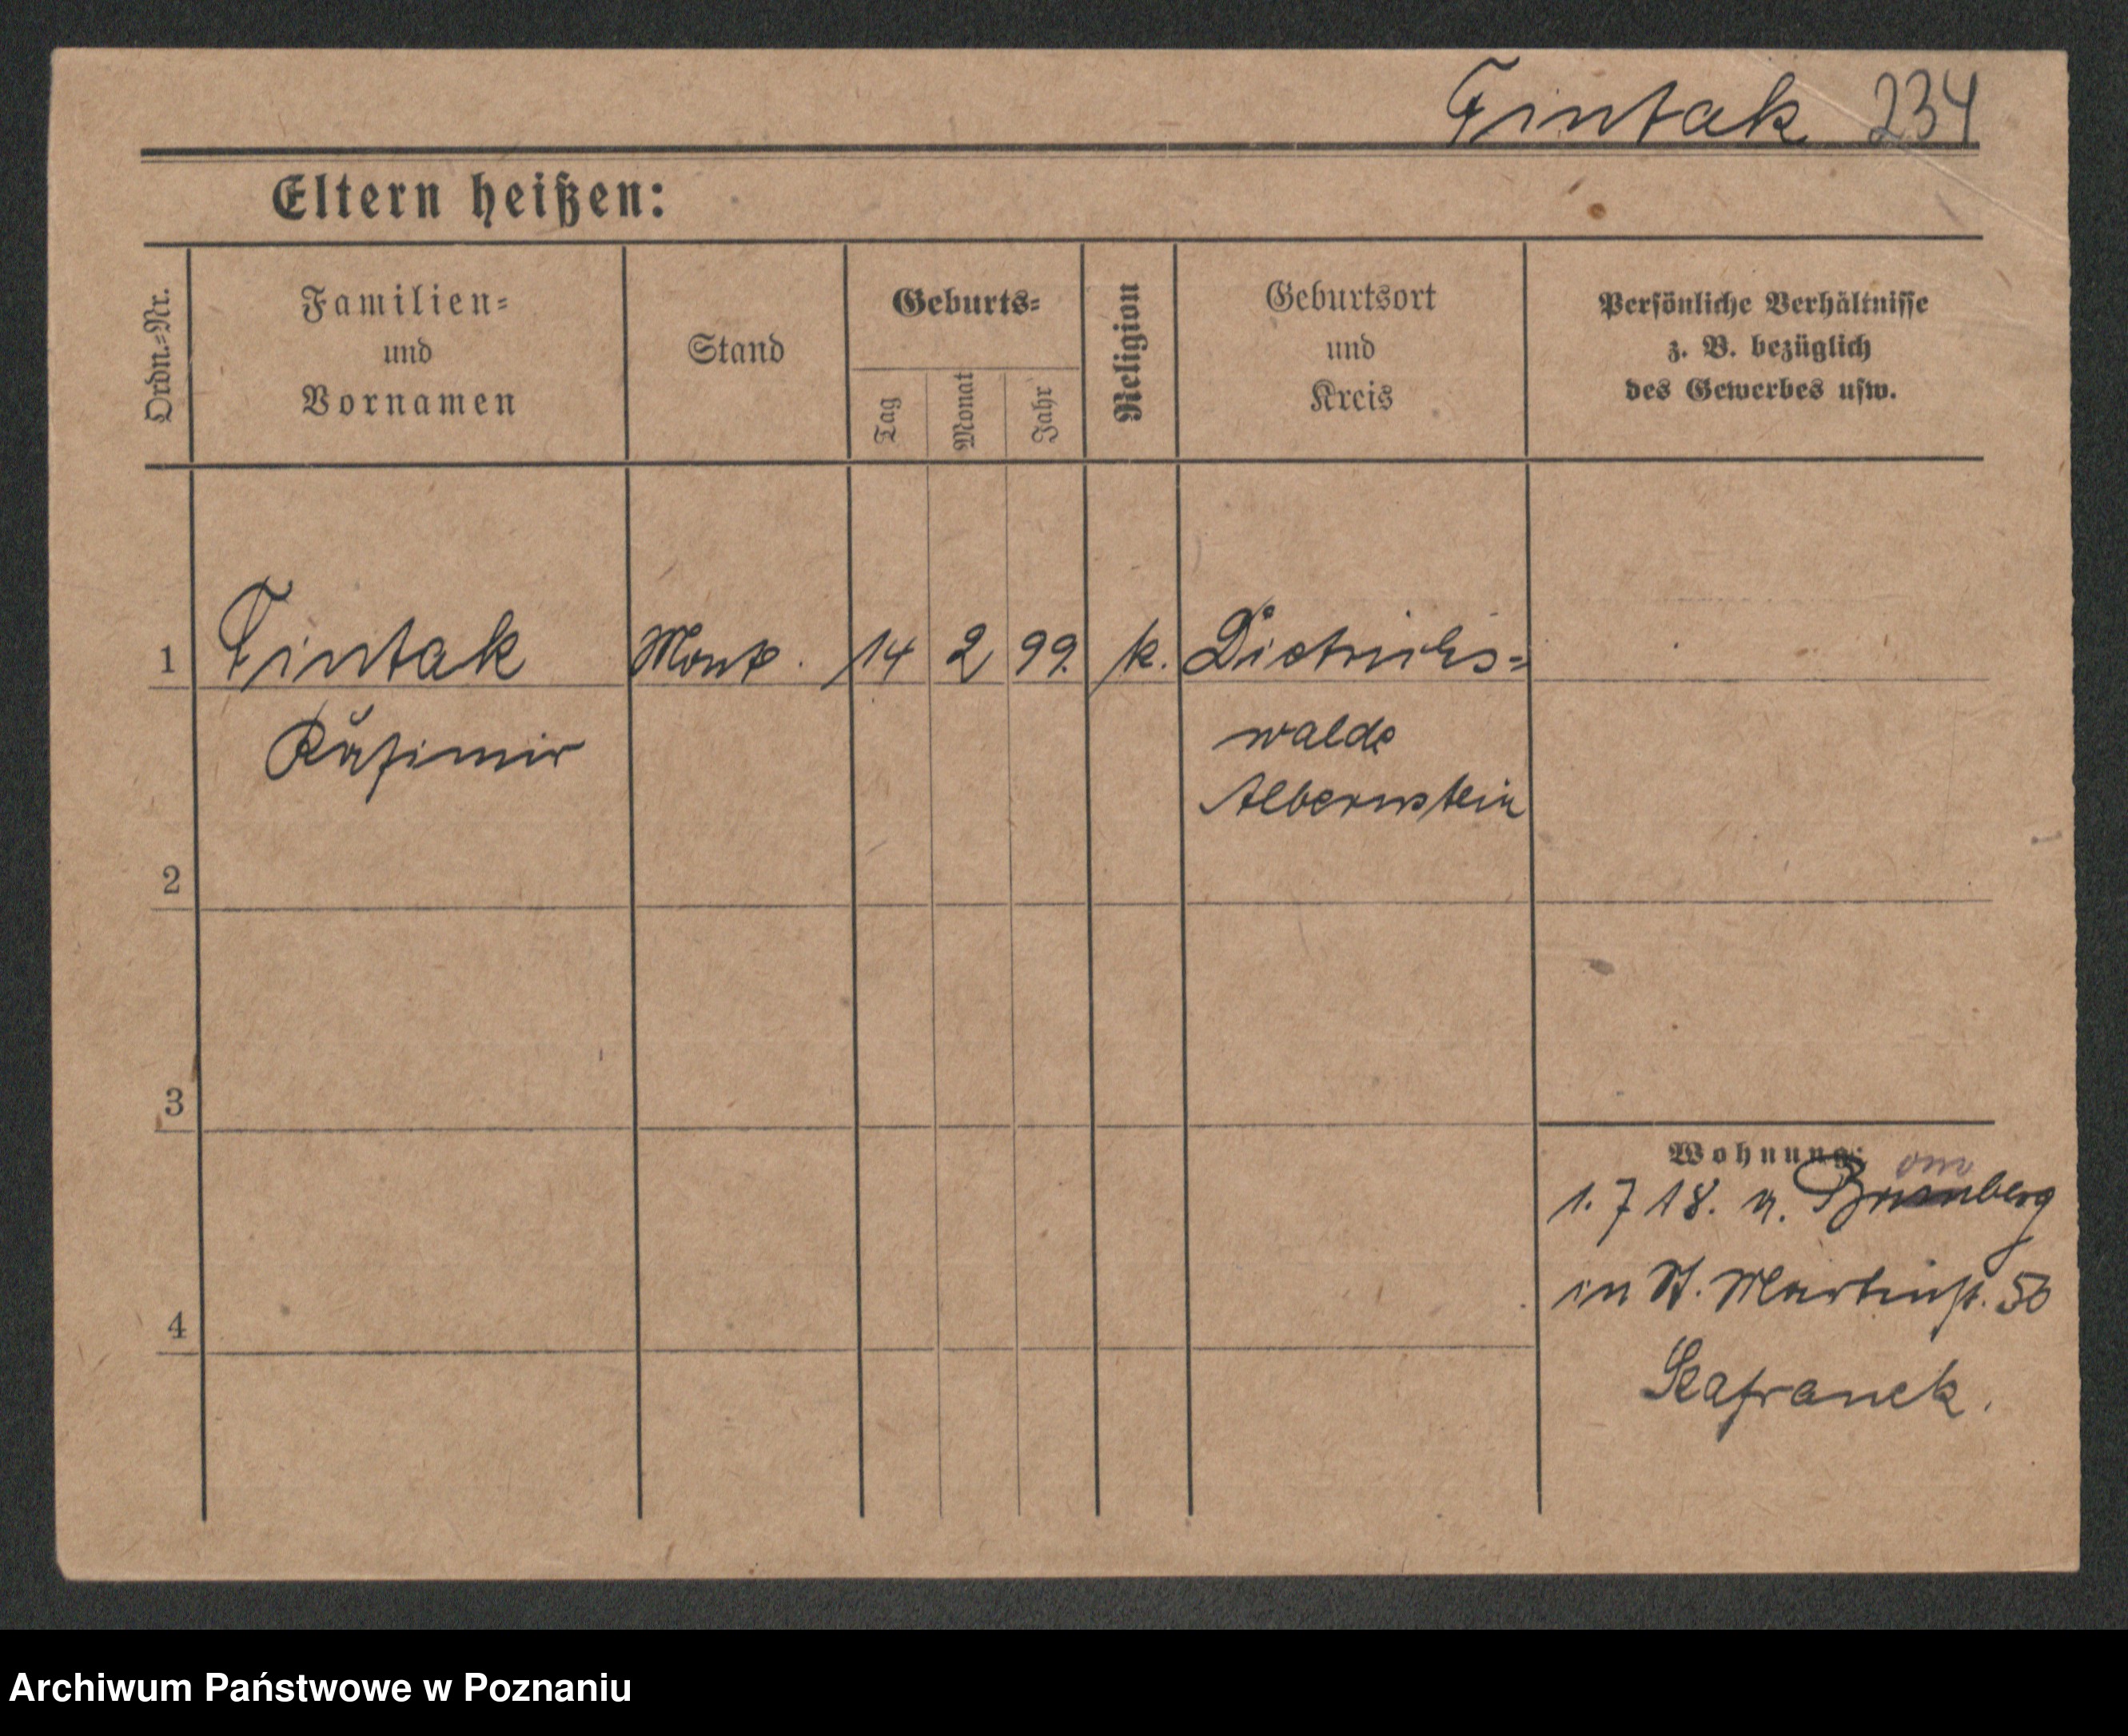 Fintak 234
Eltern heißen:
Ordn.-Nr.
Familien-
und
Vornamen
Stand
Geburts-
Tag
Monat
Jahr
Religion
Geburtsort
und
Kreis
Persönliche Verhältnisse
z. B. bezüglich
des Gewerbes usw.
1 Fintak 14 2 99. k. Dietrichs-
Kasimir
walde
2
3
4
Wohnung:
om
1. 7 18. v. Bromberg
in St. Martinst. 50
Archiwum Państwowe w Poznaniu